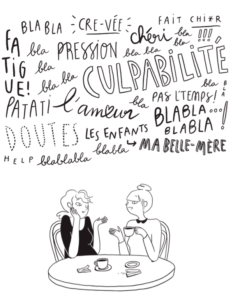 BLA BLA CRE-VÉE FAIT CHIER
FA bla PRESSION chéri bla !!!
TI bla bla bla bla
GUE! bla bla CULPABILITÉ
PATATI l'amour bla PAS L'TEMPS! BLA
DOUTES LES ENFANTS BLABLA...!
bla blabla BLABLA!
HELP blablabla → MA BELLE-MÈRE